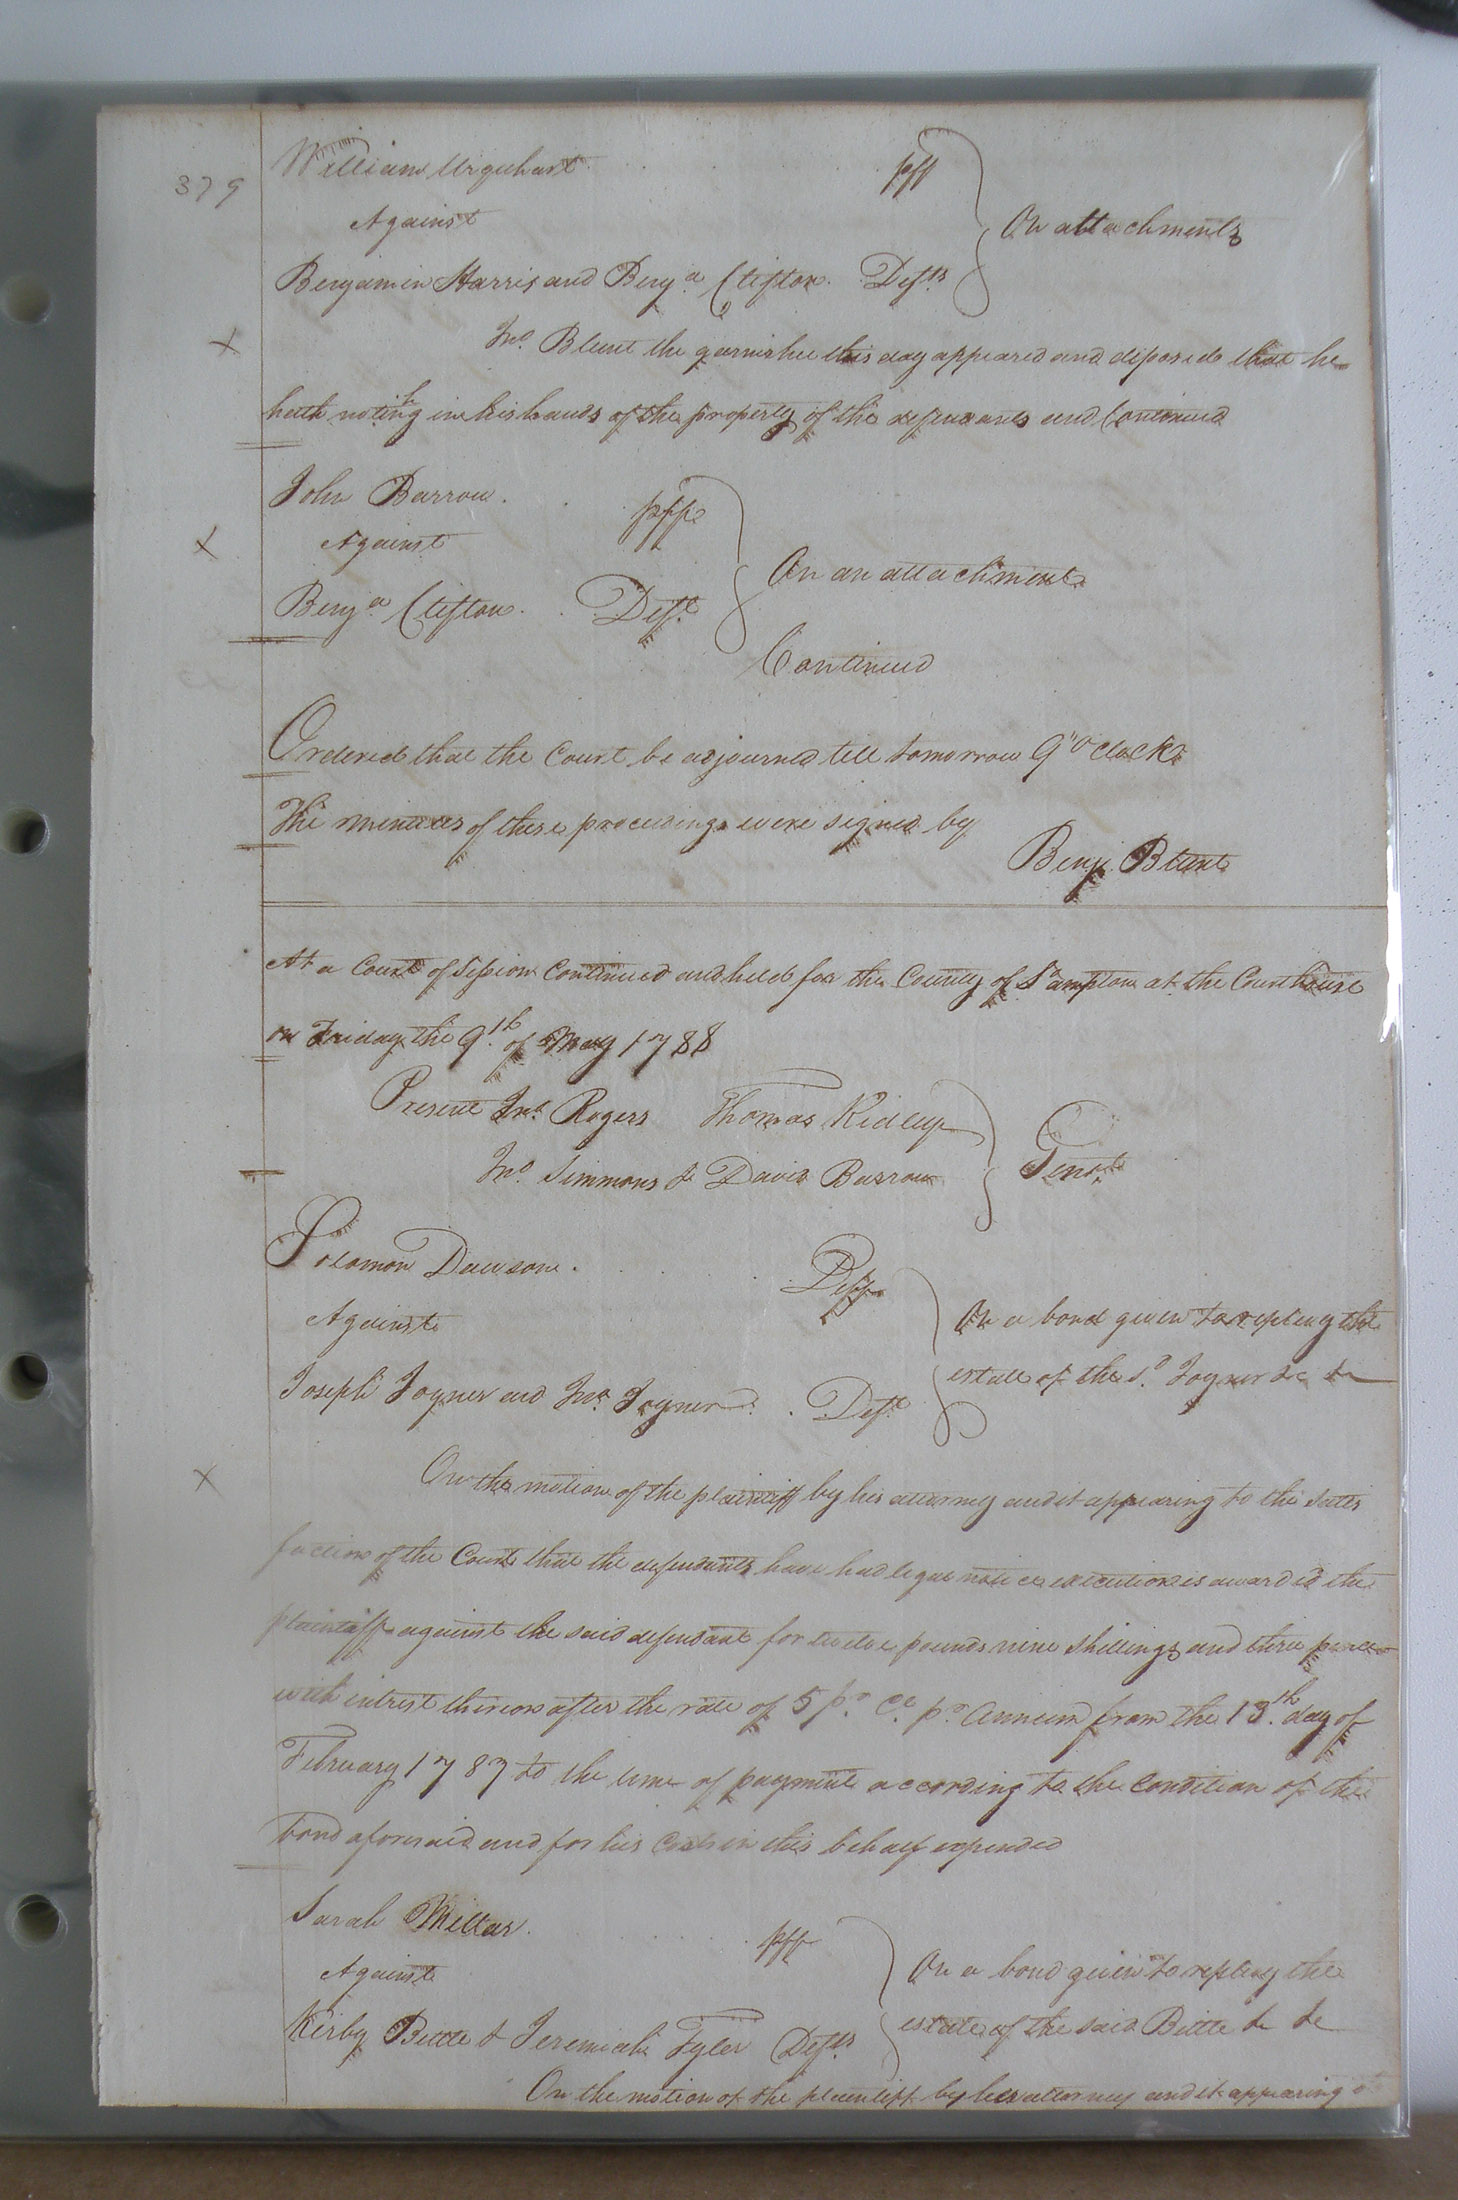 379
William Urquhart pff
Against
On attachments
Benjamin Harris and Benja Clifton Defts
Jno. Blunt the garnishee this day appeared and deposed that he
hath nothing in his hands of the property of the defendants and Continued
John Barrow pff
Against
On an attachment
Benja Clifton Deft
Continued
Ordered that the Court be adjourned till tomorrow 9 "o clock
The minutes of these proceedings were signed by
Benj. Blunt
At a Court of Session Continued and held for the County of S'ampton at the Courthouse
on Friday the 9th of May 1788
Present Jno. Rogers Thomas Ridley
Gent.
Jno. Simmons & David Barrow
Solomon Dawson
Against
On a bond given to replevy the
estate of the sd. Joyner &c &c
Joseph Joyner and Jno. Joyner Deft
On the motion of the plaintiff by his attorney and it appearing to the satis
faction of the Court that the defendants have had legal notice execution is awarded the
plaintiff against the said defendant for twelve pounds nine shillings and three pence
with intrest thereon after the rate of 5 pr. Ct. pr. Annum from the 13th day of
February 1787 to the time of payment according to the Condition of the
bond aforesaid and for his Costs in this behalf expended
Sarah Millar pff
Against
On a bond given to replevy the
estate of the said Bittle &c &c
Kirby Bittle & Jeremiah Tyler Defts
On the motion of the plaintiff by her attorney and it appearing